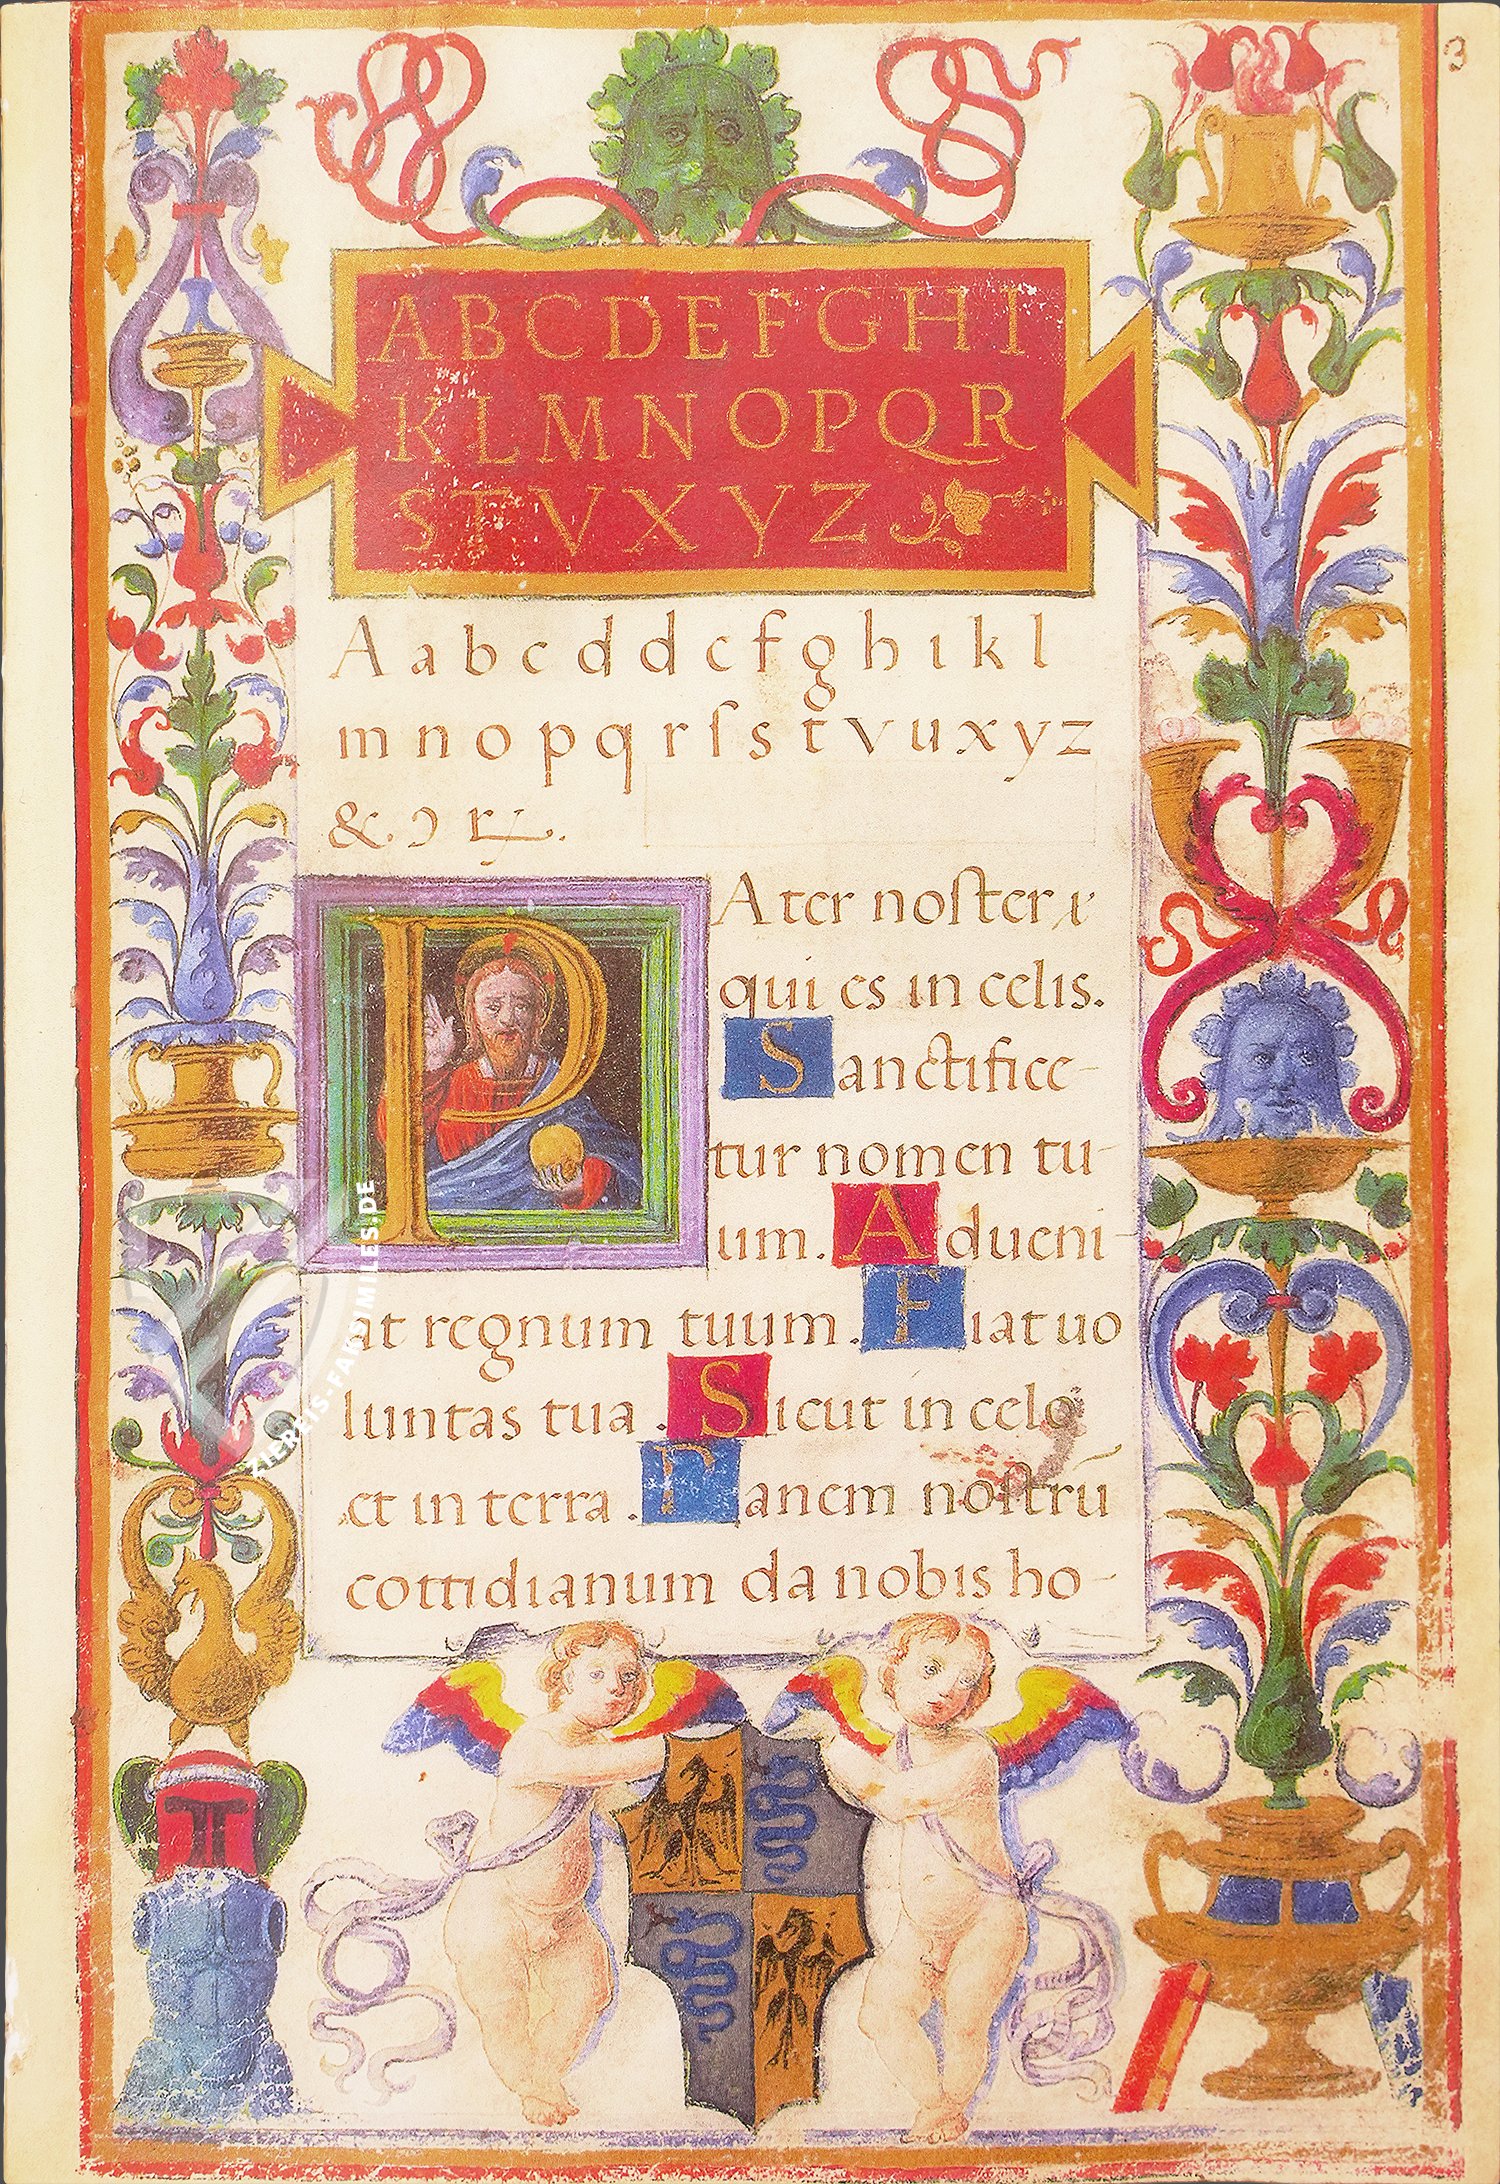 3
ABCDEFGHI
KLMNOPQR
STVXYZ
A a b c d d e f g h ı k l
m n o p q r ſ s t v u x y z
& ɔ
PAter noſter
qui es in celis.
Sanctifice-
tur nomen tu-
um. Adueni-
at regnum tuum. Fiat uo
luntas tua. Sicut in celo
et in terra. Panem noſtrū
cottidianum da nobis ho-
ZIEREIS-FAKSIMILES.DE